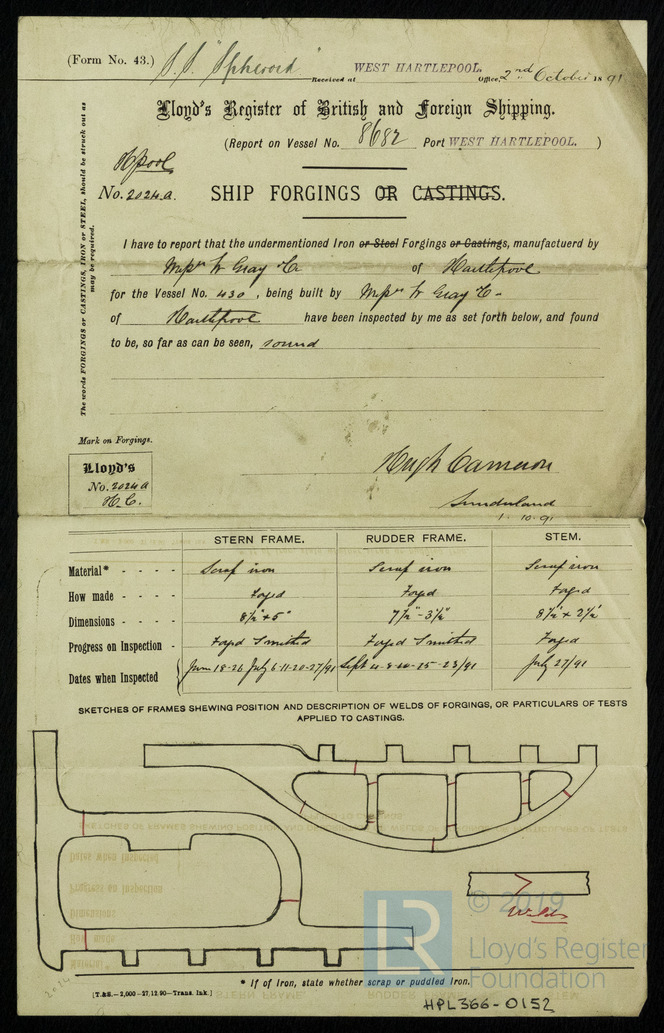 (Form No. 43.) S.S. "Spheroid" Received at WEST HARTLEPOOL. Office, 2nd October 1891
Lloyd's Register of British and Foreign Shipping.
(Report on Vessel No. 8682 Port WEST HARTLEPOOL. )
H'pool
No. 2024a.
SHIP FORGINGS OR CASTINGS.
The words FORGINGS or CASTINGS, IRON or STEEL, should be struck out as
may be required.
I have to report that the undermentioned Iron or Steel Forgings or Castings, manufactuerd by
Messrs W Gray & Co of Hartlepool
for the Vessel No. 430, being built by Messrs W Gray & Co
of Hartlepool have been inspected by me as set forth below, and found
to be, so far as can be seen, sound
Mark on Forgings.
Lloyd's
No. 2024a
H.C.
Hugh Cameron
Sunderland
1.10.91
STERN FRAME. RUDDER FRAME. STEM.
Material* - - - - Scrap iron Scrap iron Scrap iron
How made - - - Forged Forged Forged
Dimensions - - - 8½" x 5" 7½" - 3½" 8½" x 2½"
Progress on Inspection - Forged Smithed Forged Smithed Forged
Dates when Inspected June 18-26 July 6-11-20-27/91 Sept 4-8-10-15-23/91 July 27/91
SKETCHES OF FRAMES SHEWING POSITION AND DESCRIPTION OF WELDS OF FORGINGS, OR PARTICULARS OF TESTS
APPLIED TO CASTINGS.
Welds
© 2019
LR Lloyd's Register
Foundation
* If of Iron, state whether scrap or puddled Iron.
[T.&S.—2,000—27.12.90—Trans. Ink.]
HPL366-0152